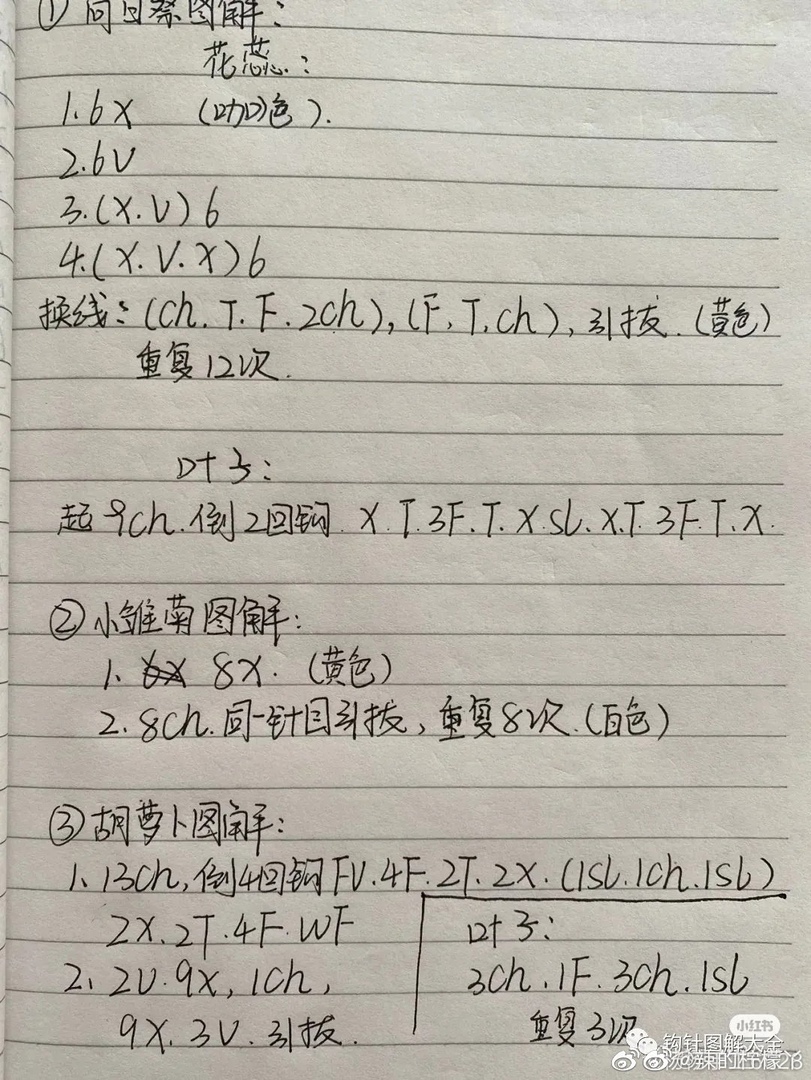 ① 向日葵图解：
花蕊：
1.6X （咖色）.
2.6V
3.(X.V)6
4.(X.V.X)6
换线：(ch.T.F.2ch),(F.T.ch),引拔.（黄色）
重复12次.
叶子：
起9ch.倒2回钩.X.T.3F.T.X.SL.X.T.3F.T.X.
② 小雏菊图解：
1、8X.（黄色）
2.8ch.同一针目引拔，重复8次.（白色）
③ 胡萝卜图解：
1、13ch,倒4回钩FV.4F.2T.2X.(1SL.1ch.1SL)
2X.2T.4F.WF
2、2V.9X,1ch,
9X.3V.引拔.
叶子：
3ch.1F.3ch.1SL
重复3次
小红书
钩针图解大全